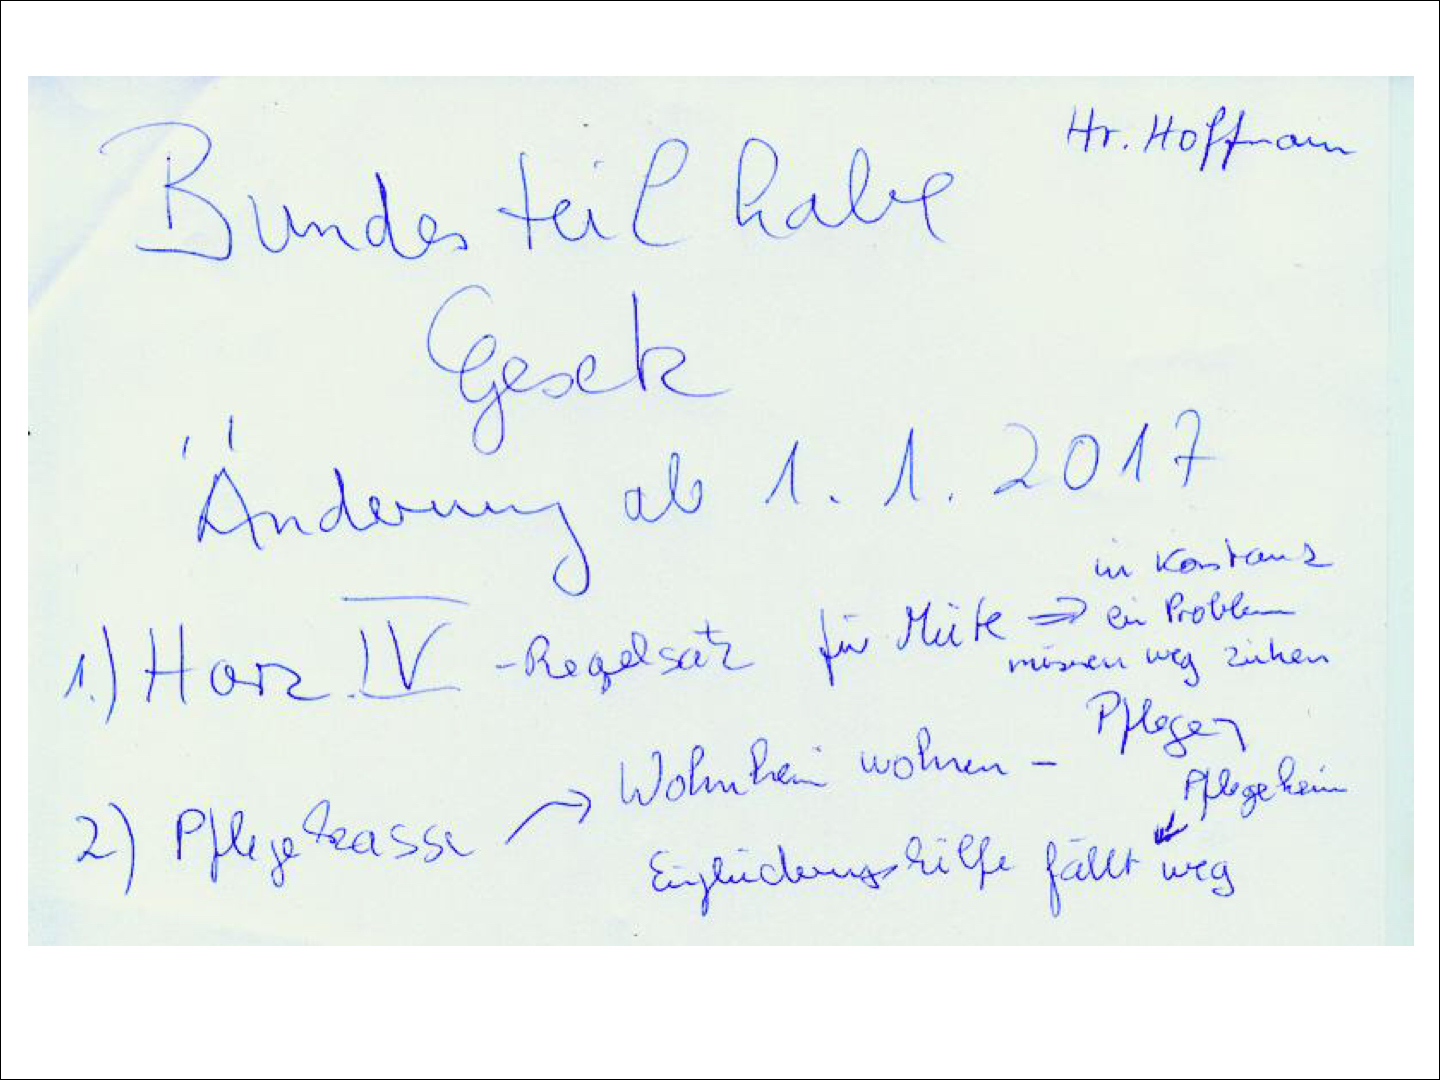 Hr. Hoffmann
Bundesteilhabe
Gesetz
Änderung ab 1.1.2017
in Konstanz
1.) Harz IV - Regelsatz für Miete => ein Problem
müssen weg ziehen
Pflege
2) Pflegekasse → Wohnheim wohnen -
Pflegeheim
Eingliederungshilfe fällt weg